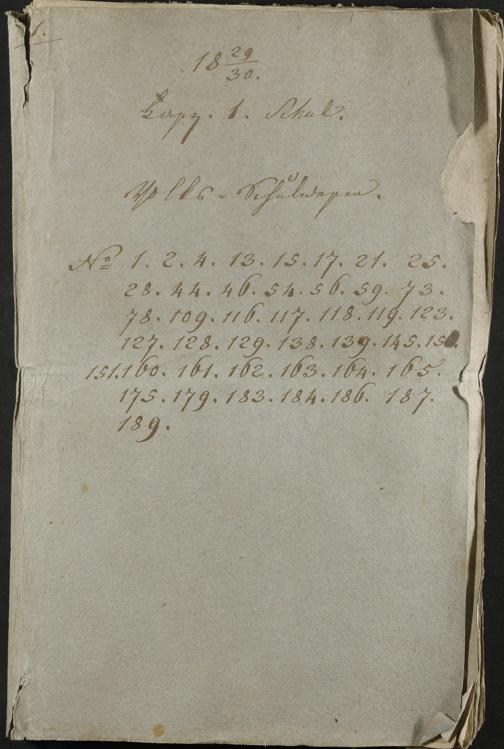 1.
18 29/30.
Kapz. 1. Schul.
Volks = Schulwesen.
No 1. 2. 4. 13. 15. 17. 21. 25.
28. 44. 46. 54. 56. 59. 73.
78. 109. 116. 117. 118. 119. 123.
127. 128. 129. 138. 139. 145. 150.
151. 160. 161. 162. 163. 164. 165.
175. 179. 183. 184. 186. 187.
189.